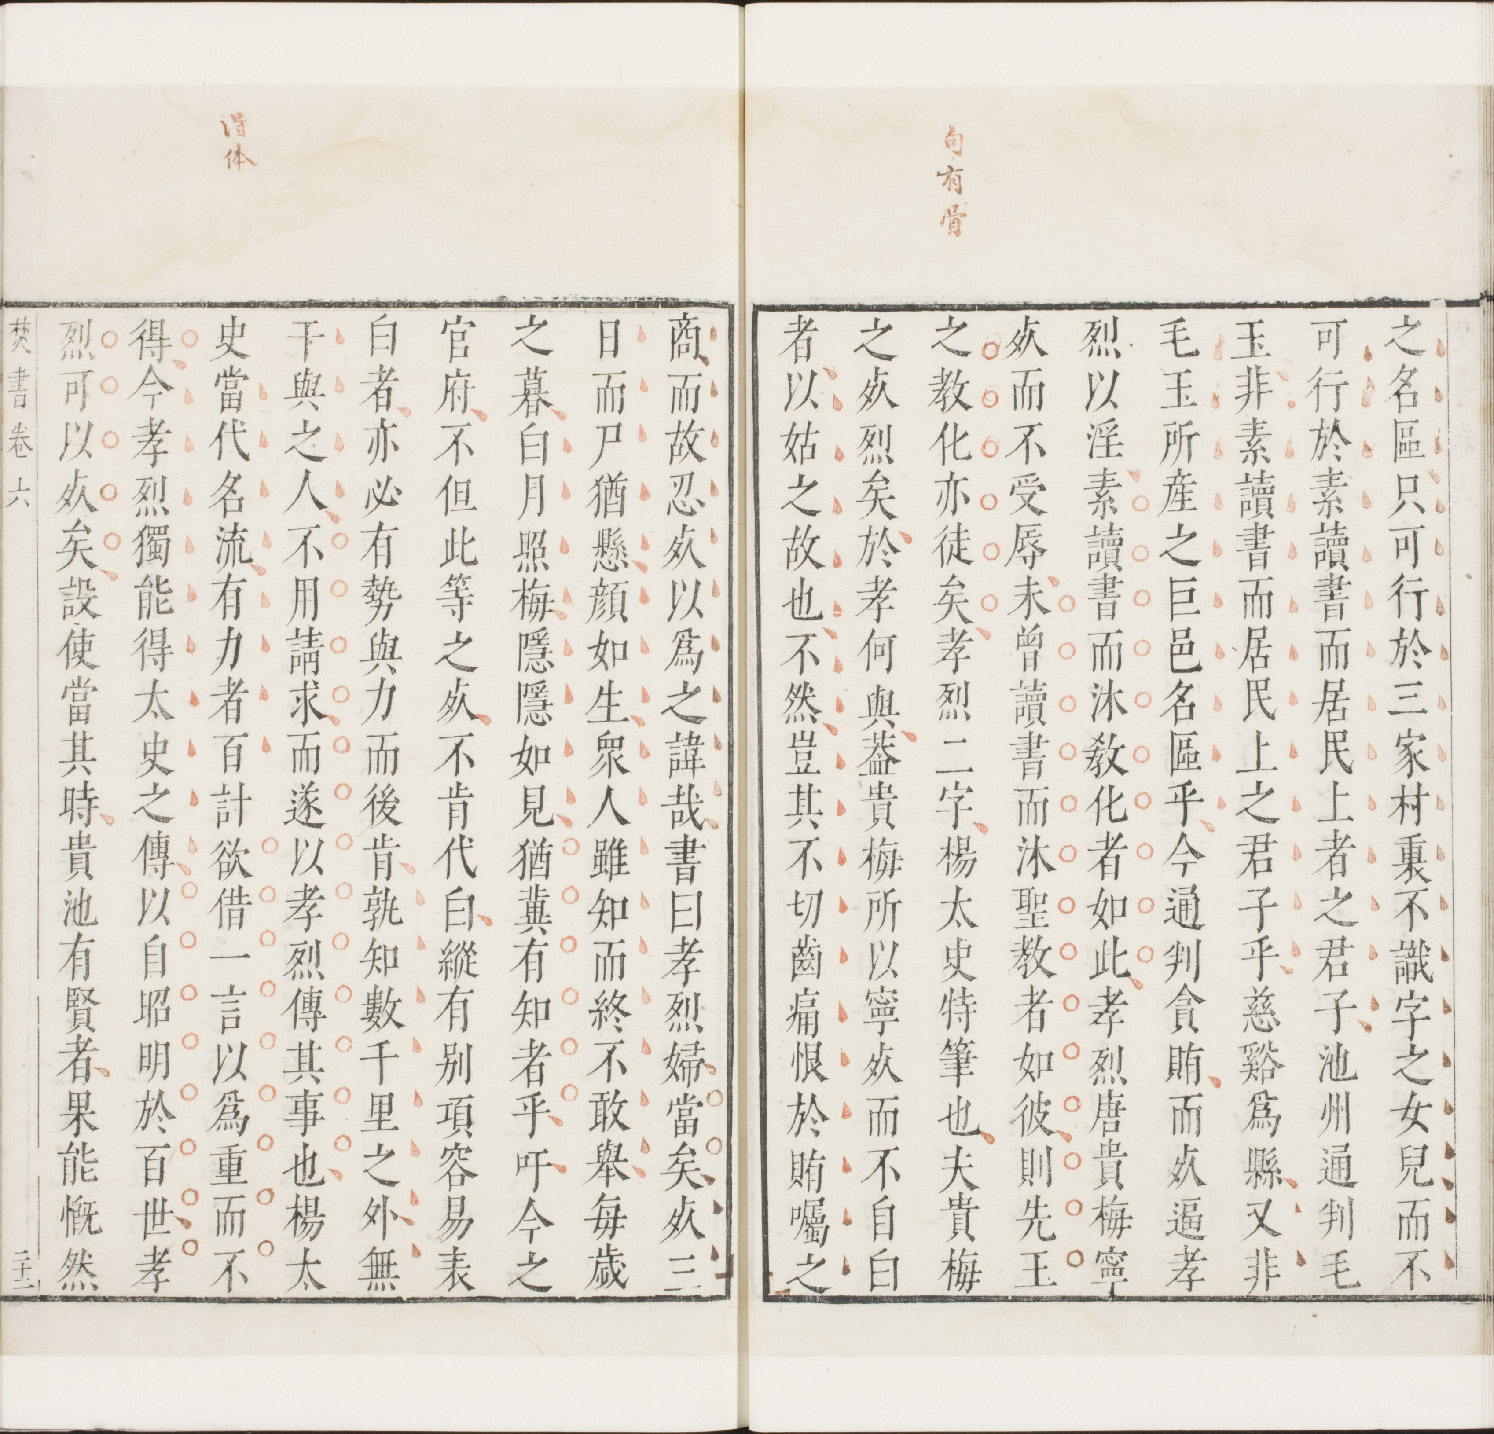 句有骨
之名區只可行於三家村裏不識字之女兒而不
可行於素讀書而居民上者之君子池州通判毛
玉非素讀書而居民上之君子乎慈谿爲縣又非
毛玉所産之巨邑名區乎今通判貪賄而㱙逼孝
烈以淫素讀書而沐教化者如此孝烈唐貴梅寧
㱙而不受辱未曾讀書而沐聖教者如彼則先王
之教化亦徒矣孝烈二字楊太史特筆也夫貴梅
之㱙烈矣於孝何與葢貴梅所以寧㱙而不自白
者以姑之故也不然豈其不切齒痛恨於賄囑之
得体
商而故忍㱙以爲之諱哉書曰孝烈婦當矣㱙三
日而尸猶懸顔如生衆人雖知而終不敢舉每歲
之暮白月照梅隱隱如見猶兾有知者乎吁今之
官府不但此等之㱙不肯代白縱有别項容易表
白者亦必有勢與力而後肯孰知數千里之外無
干與之人不用請求而遂以孝烈傳其事也楊太
史當代名流有力者百計欲借一言以爲重而不
得今孝烈獨能得太史之傳以自昭明於百世孝
烈可以㱙矣設使當其時貴池有賢者果能慨然
焚書卷六